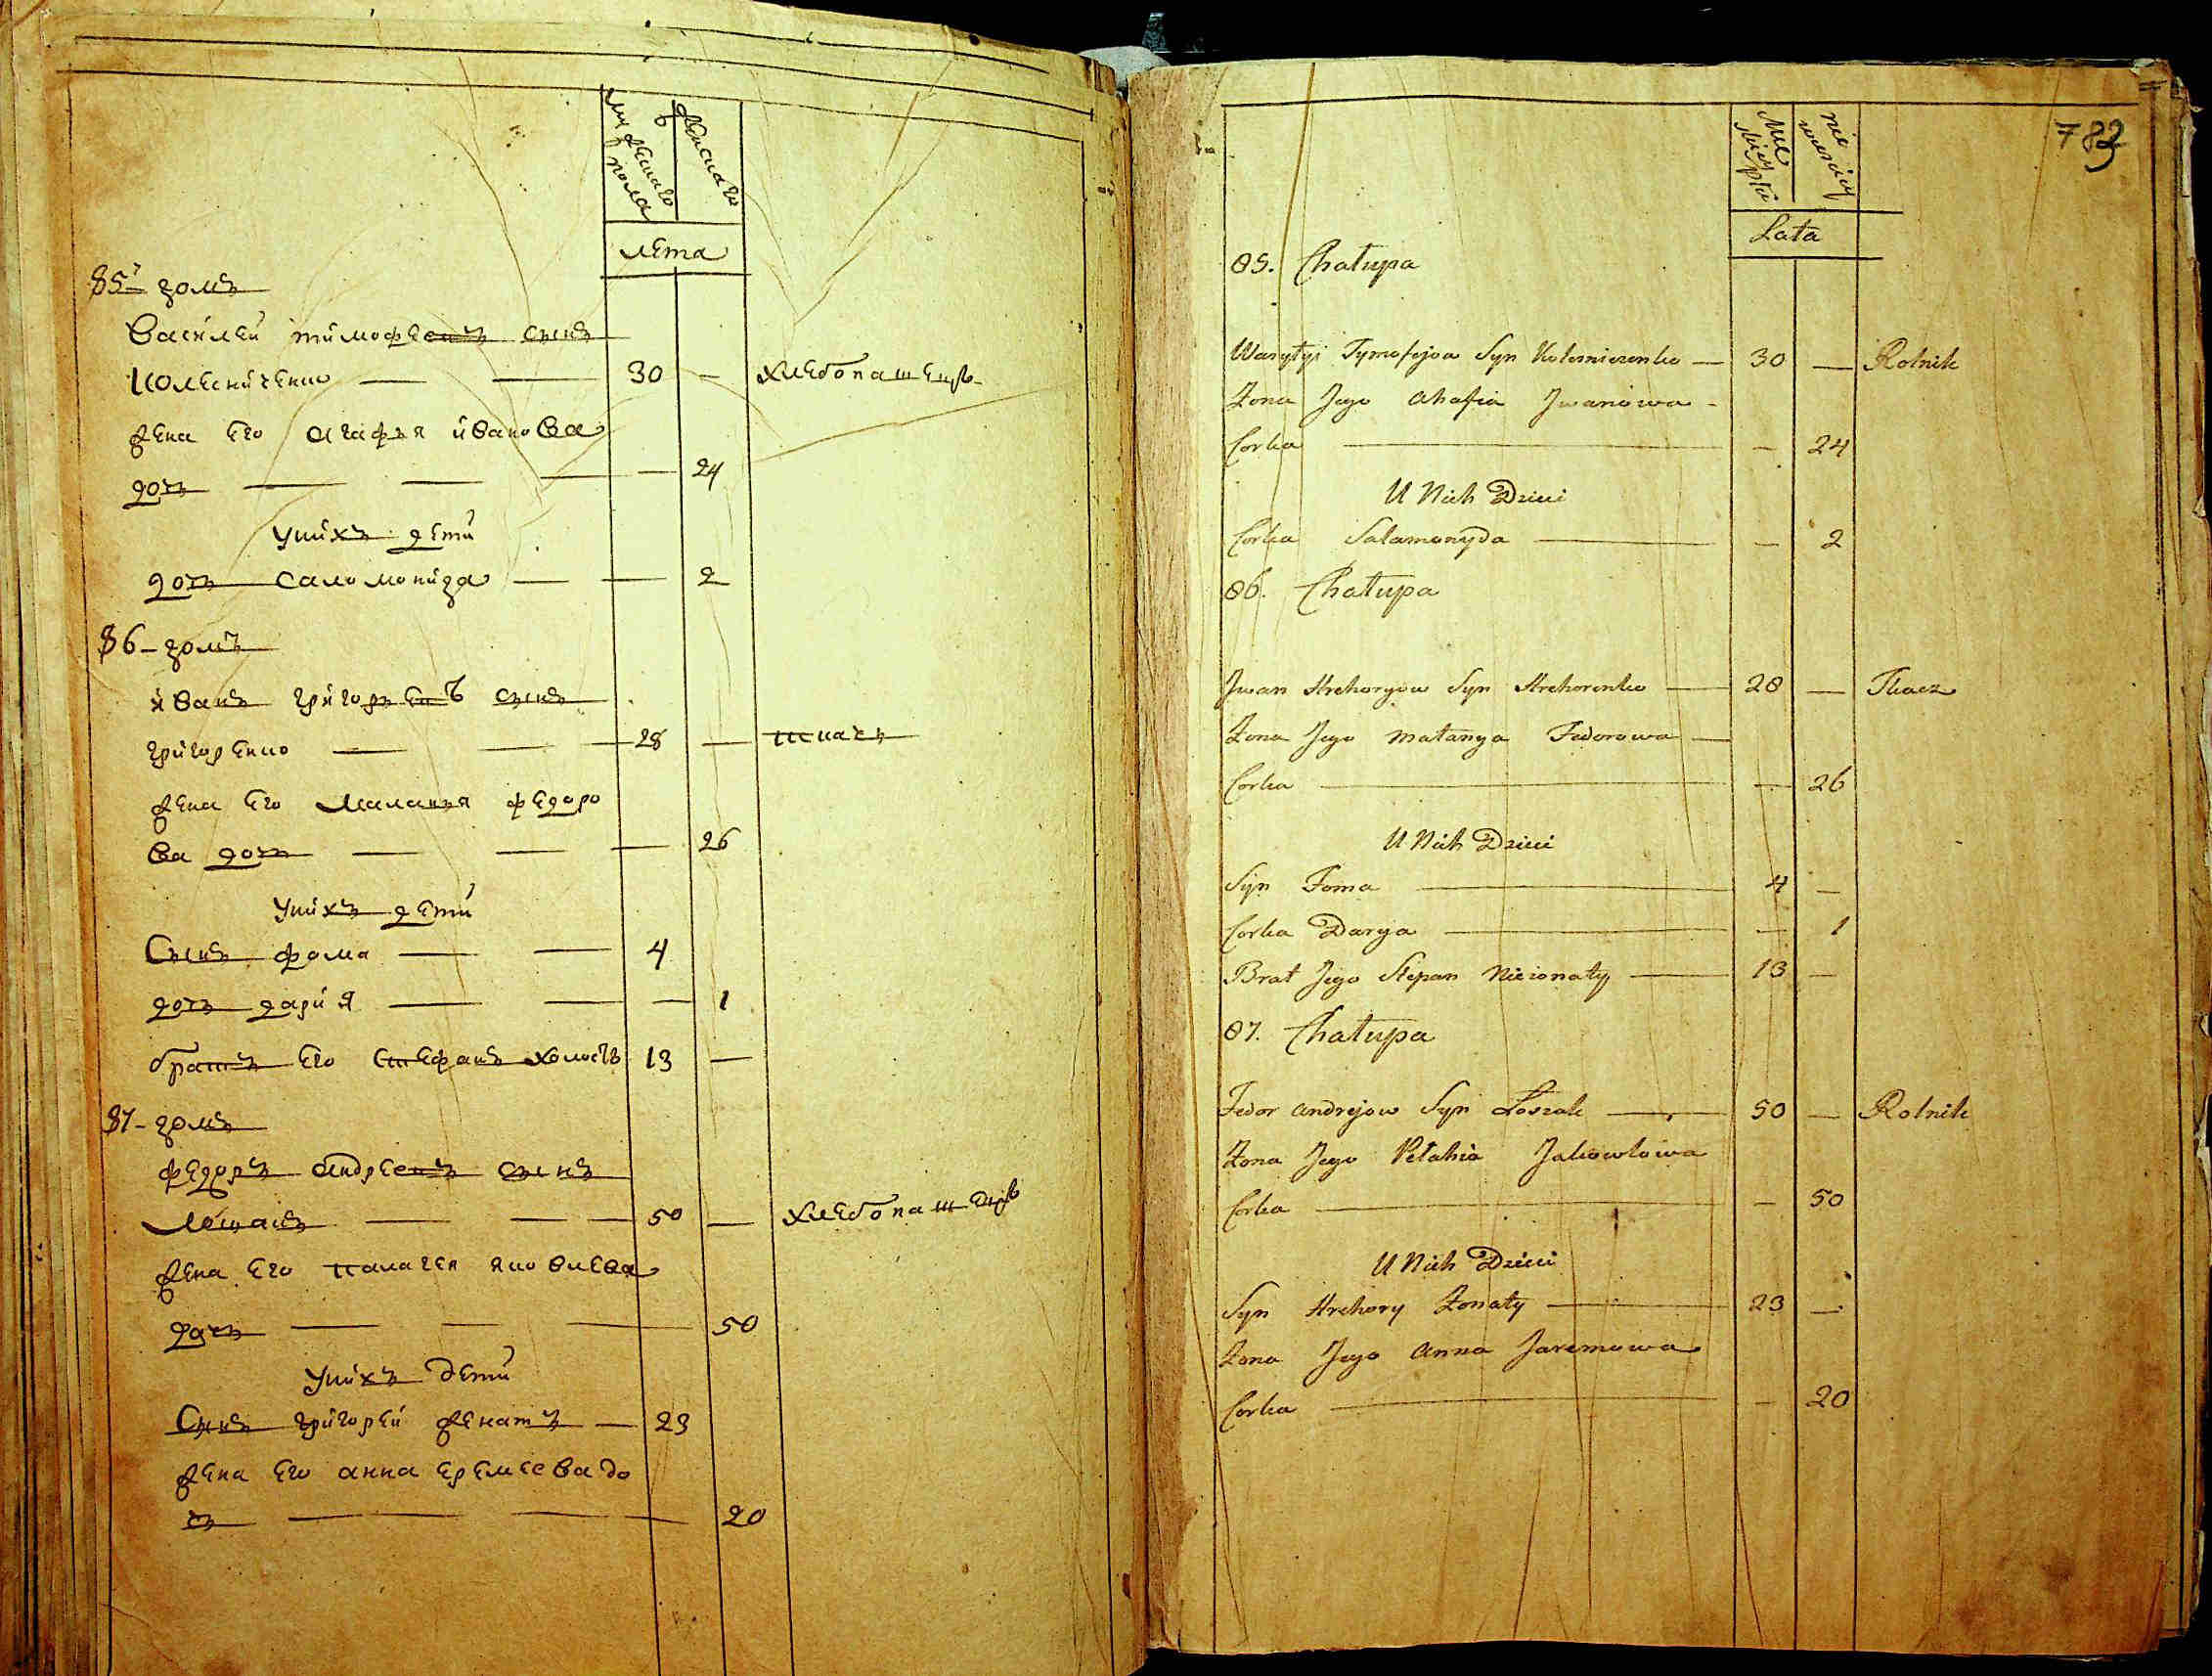 мужеска пола
женска
лета
85 домъ
Василей тимофеевъ сынъ
Колесниченко — — 30 — хлебопашецъ
жена его агафья иванова
дочь — — — — 24
Унихъ дети
дочь саломонида — — 2
86 - домъ
иванъ григорьевъ сынъ
григоренко — — — 28 — ткачь
жена его маланья федоро
ва дочь — — — 26
Унихъ дети
Сынъ фома — — 4
дочь дария — — — 1
братъ его Стефанъ холостъ 13 —
87 - домъ
федоръ андреевъ сынъ
Лошакъ — — — 50 — хлебопашецъ
жена его палагея яковлева
дочь — — — 50
Унихъ дети
Сынъ григорей женатъ — 23
жена его анна еремеева до
чь — — — 20
783
Lata
85. Chałupa
Wasylyi Tymofejow Syn Kolesniczenko — 30 — Rolnik
Żona Jego Ahafia Jwanowa -
Corka — — 24
U Nich Dzieci
Corka Salamonyda — — 2
86. Chałupa
Jwan Hrehoryow Syn Hrehorenko — 28 — Tkacz
Żona Jego Małanya Fedorowa —
Corka — — 26
U Nich Dzieci
Syn Foma — 4 —
Corka Darya — — 1
Brat Jego Stepan Nieżonaty — 13 —
87. Chałupa
Fedor Andrejow Syn Łoszak — 50 — Rolnik
Żona Jego Pełahia Jakowlowa
Corka — — 50
U Nich Dzieci
Syn Hrehory Żonaty — 23 —
Żona Jego Anna Jaremowa
Corka — — 20